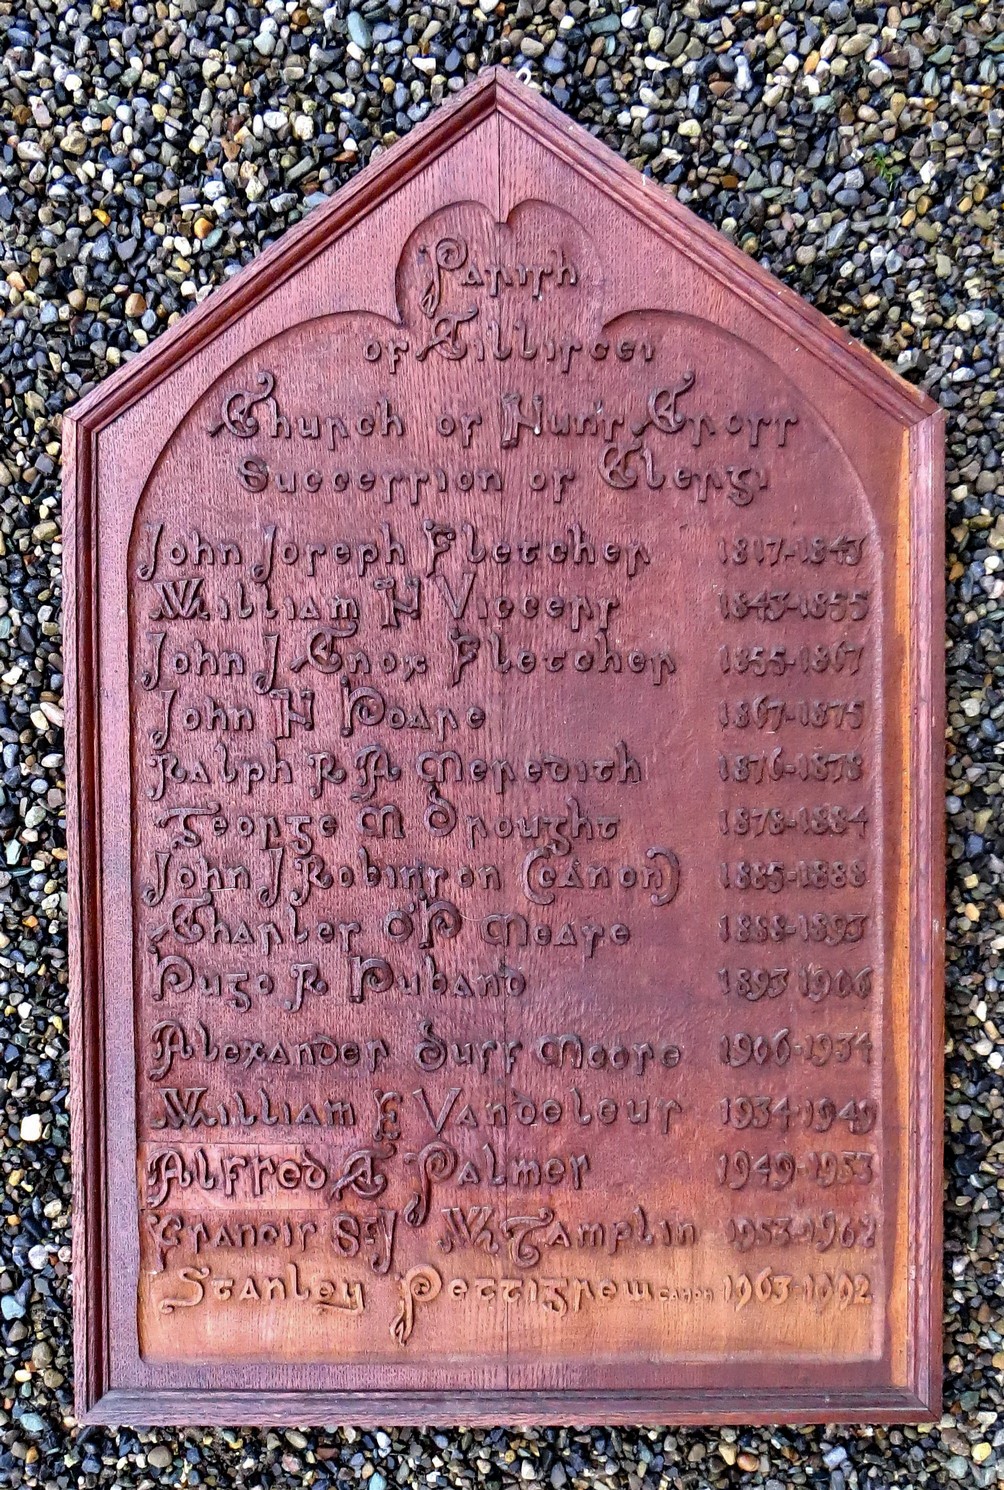 Parish
of Tillifreei
Church of Hunt's Cross
Succession of Clergy
John Joseph Fletcher 1817-1843
William H Viccers 1843-1855
John J Cnox Fletcher 1855-1867
John H Hoare 1867-1875
Ralph R A Meredith 1876-1878
George M Drought 1878-1884
John J Robinson (Canon) 1885-1888
Charles O'H Meare 1888-1893
Hugo R Huband 1893-1906
Alexander Duff Moore 1906-1934
William E Vandeleur 1934-1949
Alfred T Palmer 1949-1953
Francis St J W Tamplin 1953-1962
Stanley Pettigrew Canon 1963-1992